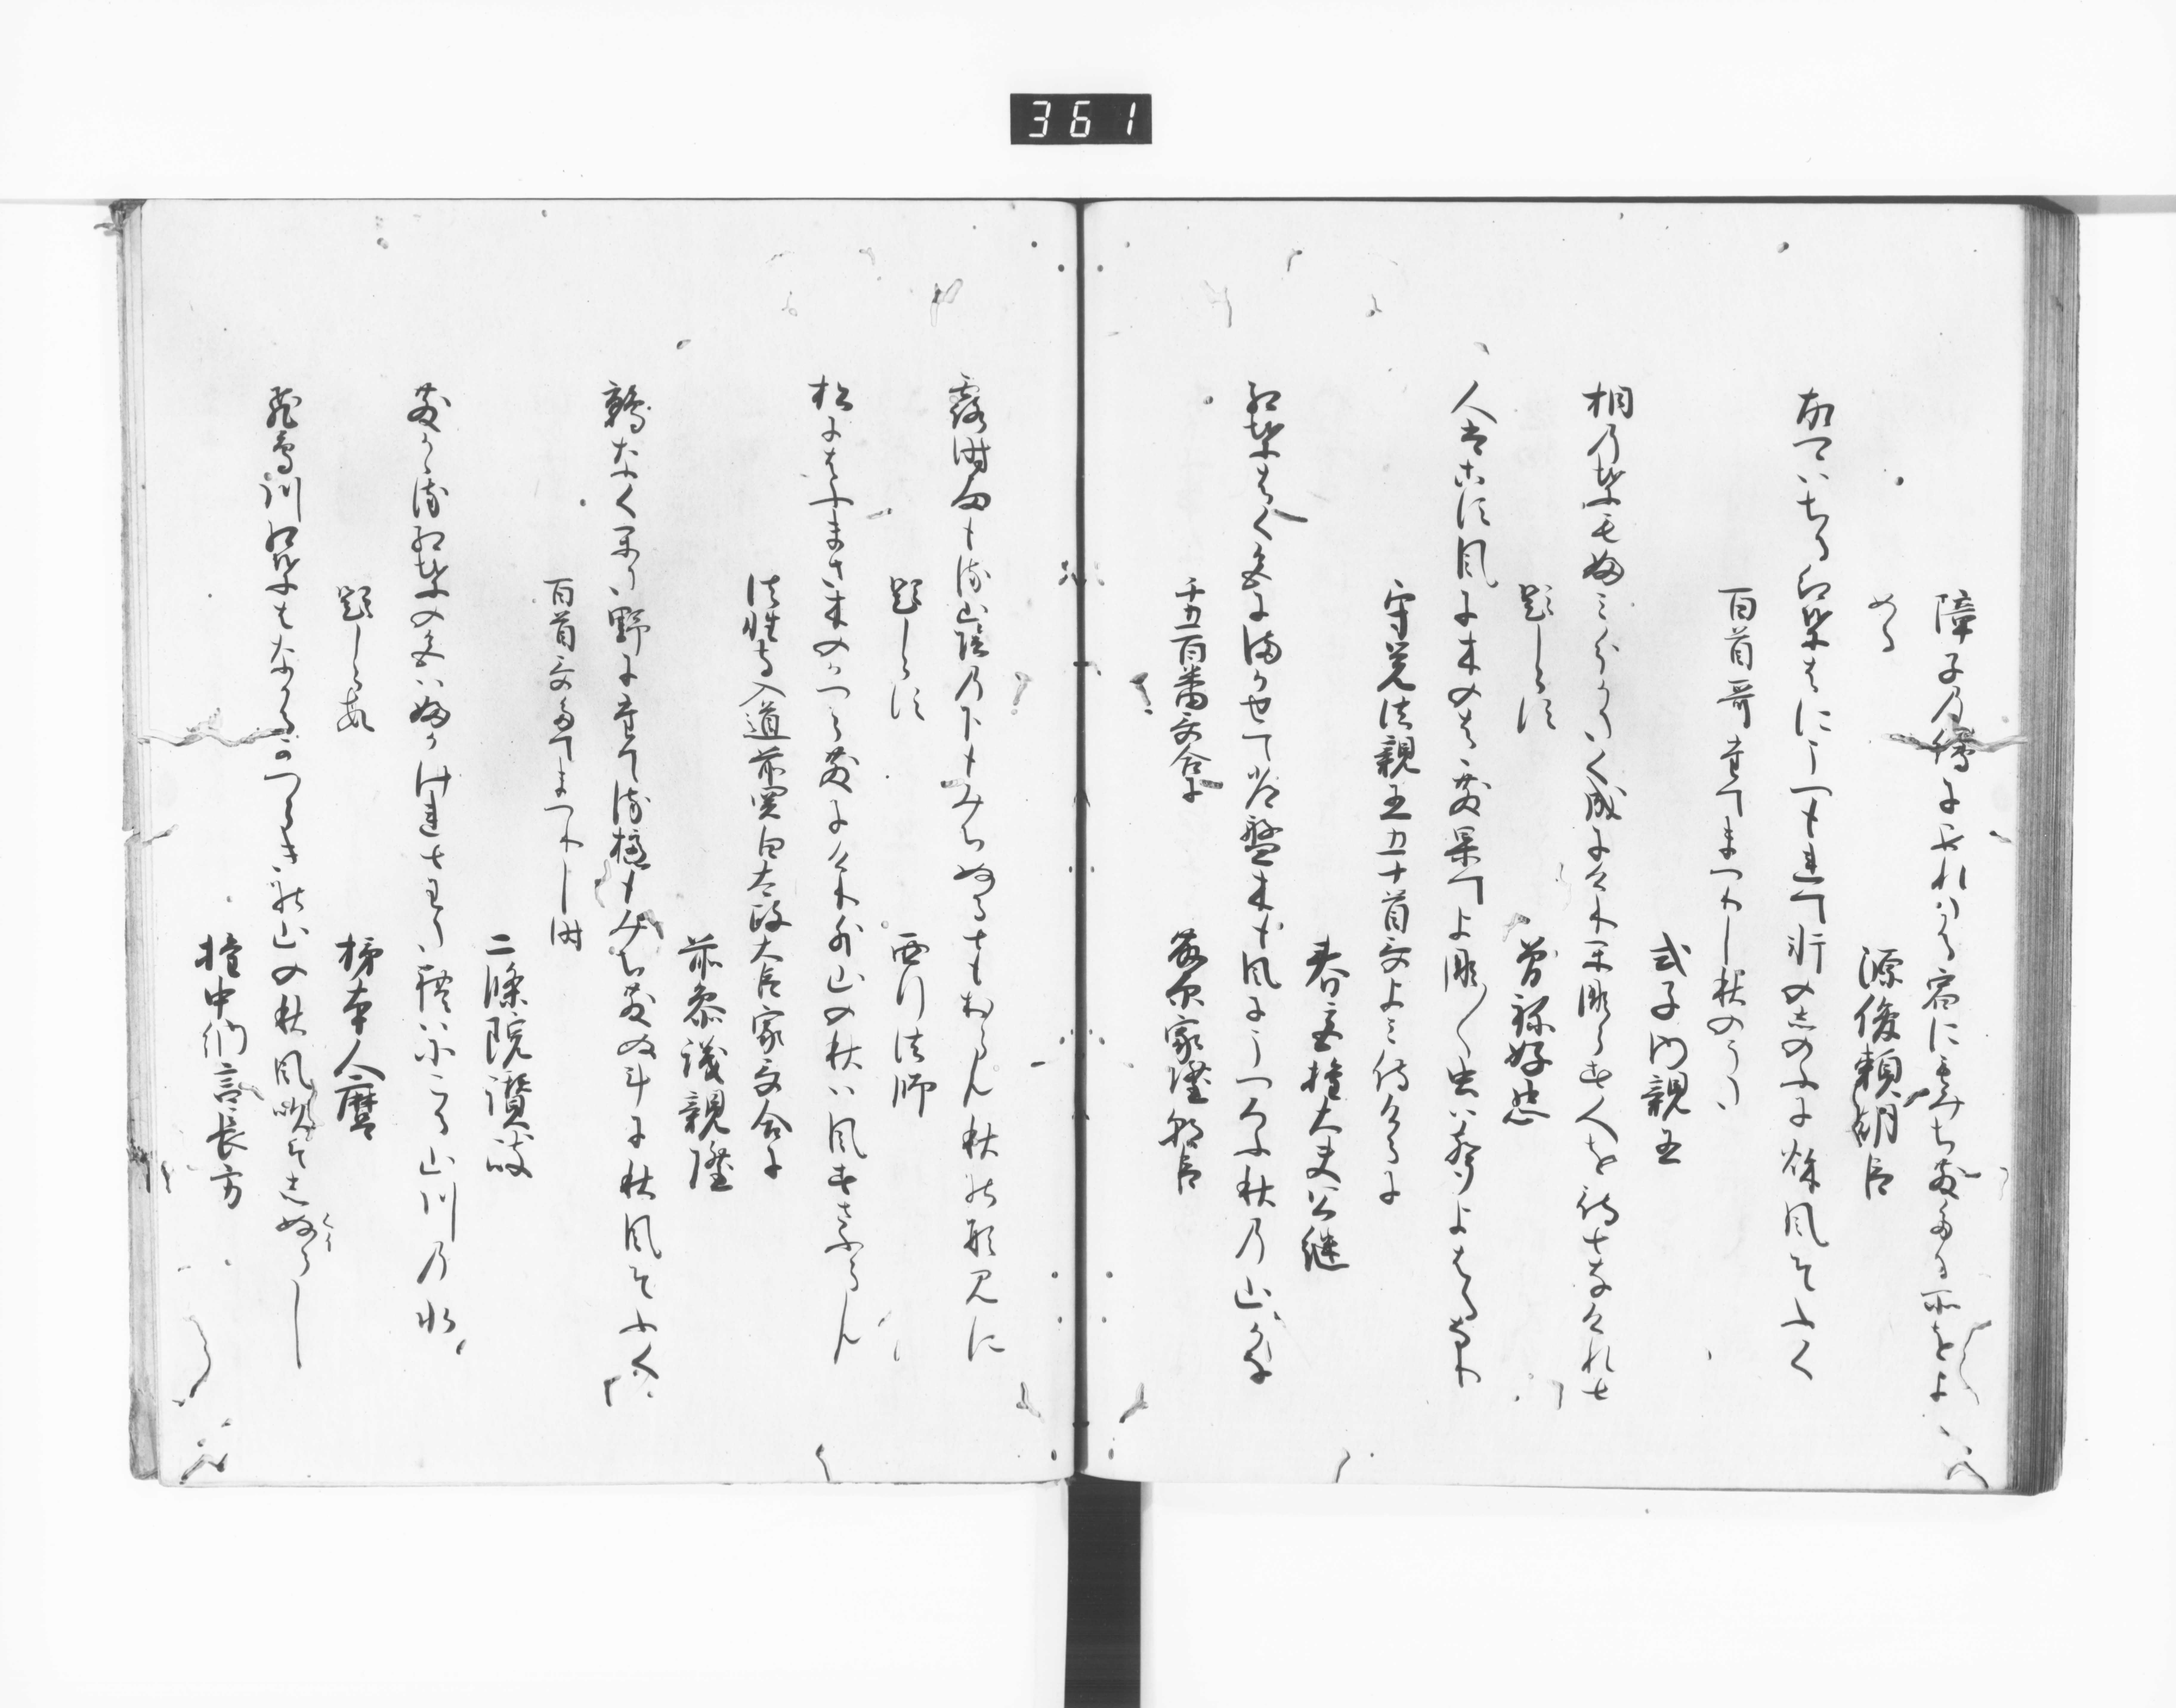 361
障子乃繪にあれたる宿にもみち散たる所をよ
める
源俊頼朝臣
故郷はちる紅葉はにうつもれて軒のしのふに秋風そふく
百首哥たてまつりし秋のうた
式子内親王
桐乃葉もふみわけかたく成にけりかならす人を待となけれと
題しらす
曽祢好忠
人はこす風に木のはは散果てよな〳〵虫は聲よはるなり
守覚法親王五十首哥よませ侍けるに
春宮権大夫公継
紅葉はの色にまかせて常盤木も風にうつろふ秋乃山かな
千五百番哥合に
藤原家隆朝臣
露時雨もる山陰乃下もみちぬるともおらん秋の形見に
題しらす
西行法師
松にはふまさきのかつら散にけり外山の秋は風すさふらん
法性寺入道前関白太政大臣家哥合に
前参議親隆
鶉なくかた野にたてる櫨もみち散ぬ斗に秋風そふく
百首哥たてまつりし時
二條院讃岐
散かゝる紅葉の色はふかけれとわたれはにこる山川乃水
題しらす
柿本人麿
飛鳥川紅葉はなかるかつらきの山の秋風吹そしぬらし
くイ
権中納言長方